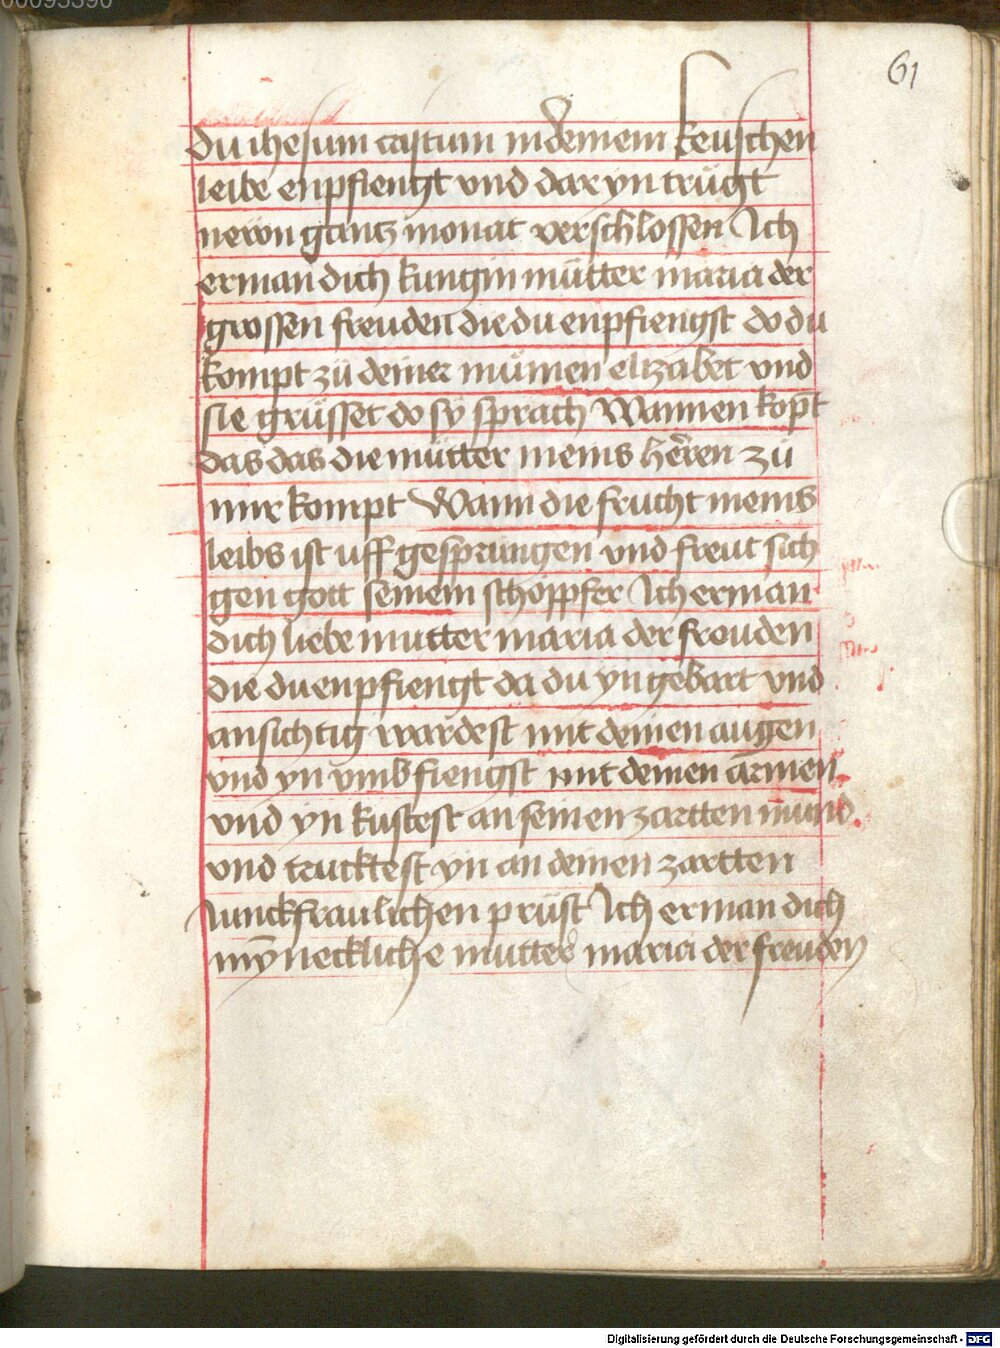 00095390
61
du ihesum castum in deinem keuschen
leibe enpfiengt vnd dar yn trügt
newn gantz monat verschlossen Ich
erman dich kungin mütter maria der
grossen freuden die du enpfiengst do du
kompt zü deiner mümen elizabet vnd
sie grüsset do sy sprach Wannen kopt
das das die mütter meins herren zü
mir kompt Wann die frucht meins
leibs ist uff gesprungen vnd freut sich
gen gott seinem schöppfer Ich erman
dich liebe mutter maria der freuden
die du enpfiengt da du yn gebart vnd
ansichtig wardest mit deinen augen
vnd yn vmbfiengst mit deinen armen
vnd yn kustest an seinen zartten mund
vnd trucktest yn an deinen zartten
Junckfraulichen prüst Ich erman dich
mynneckliche mutter maria der freuden
Digitalisierung gefördert durch die Deutsche Forschungsgemeinschaft - DFG